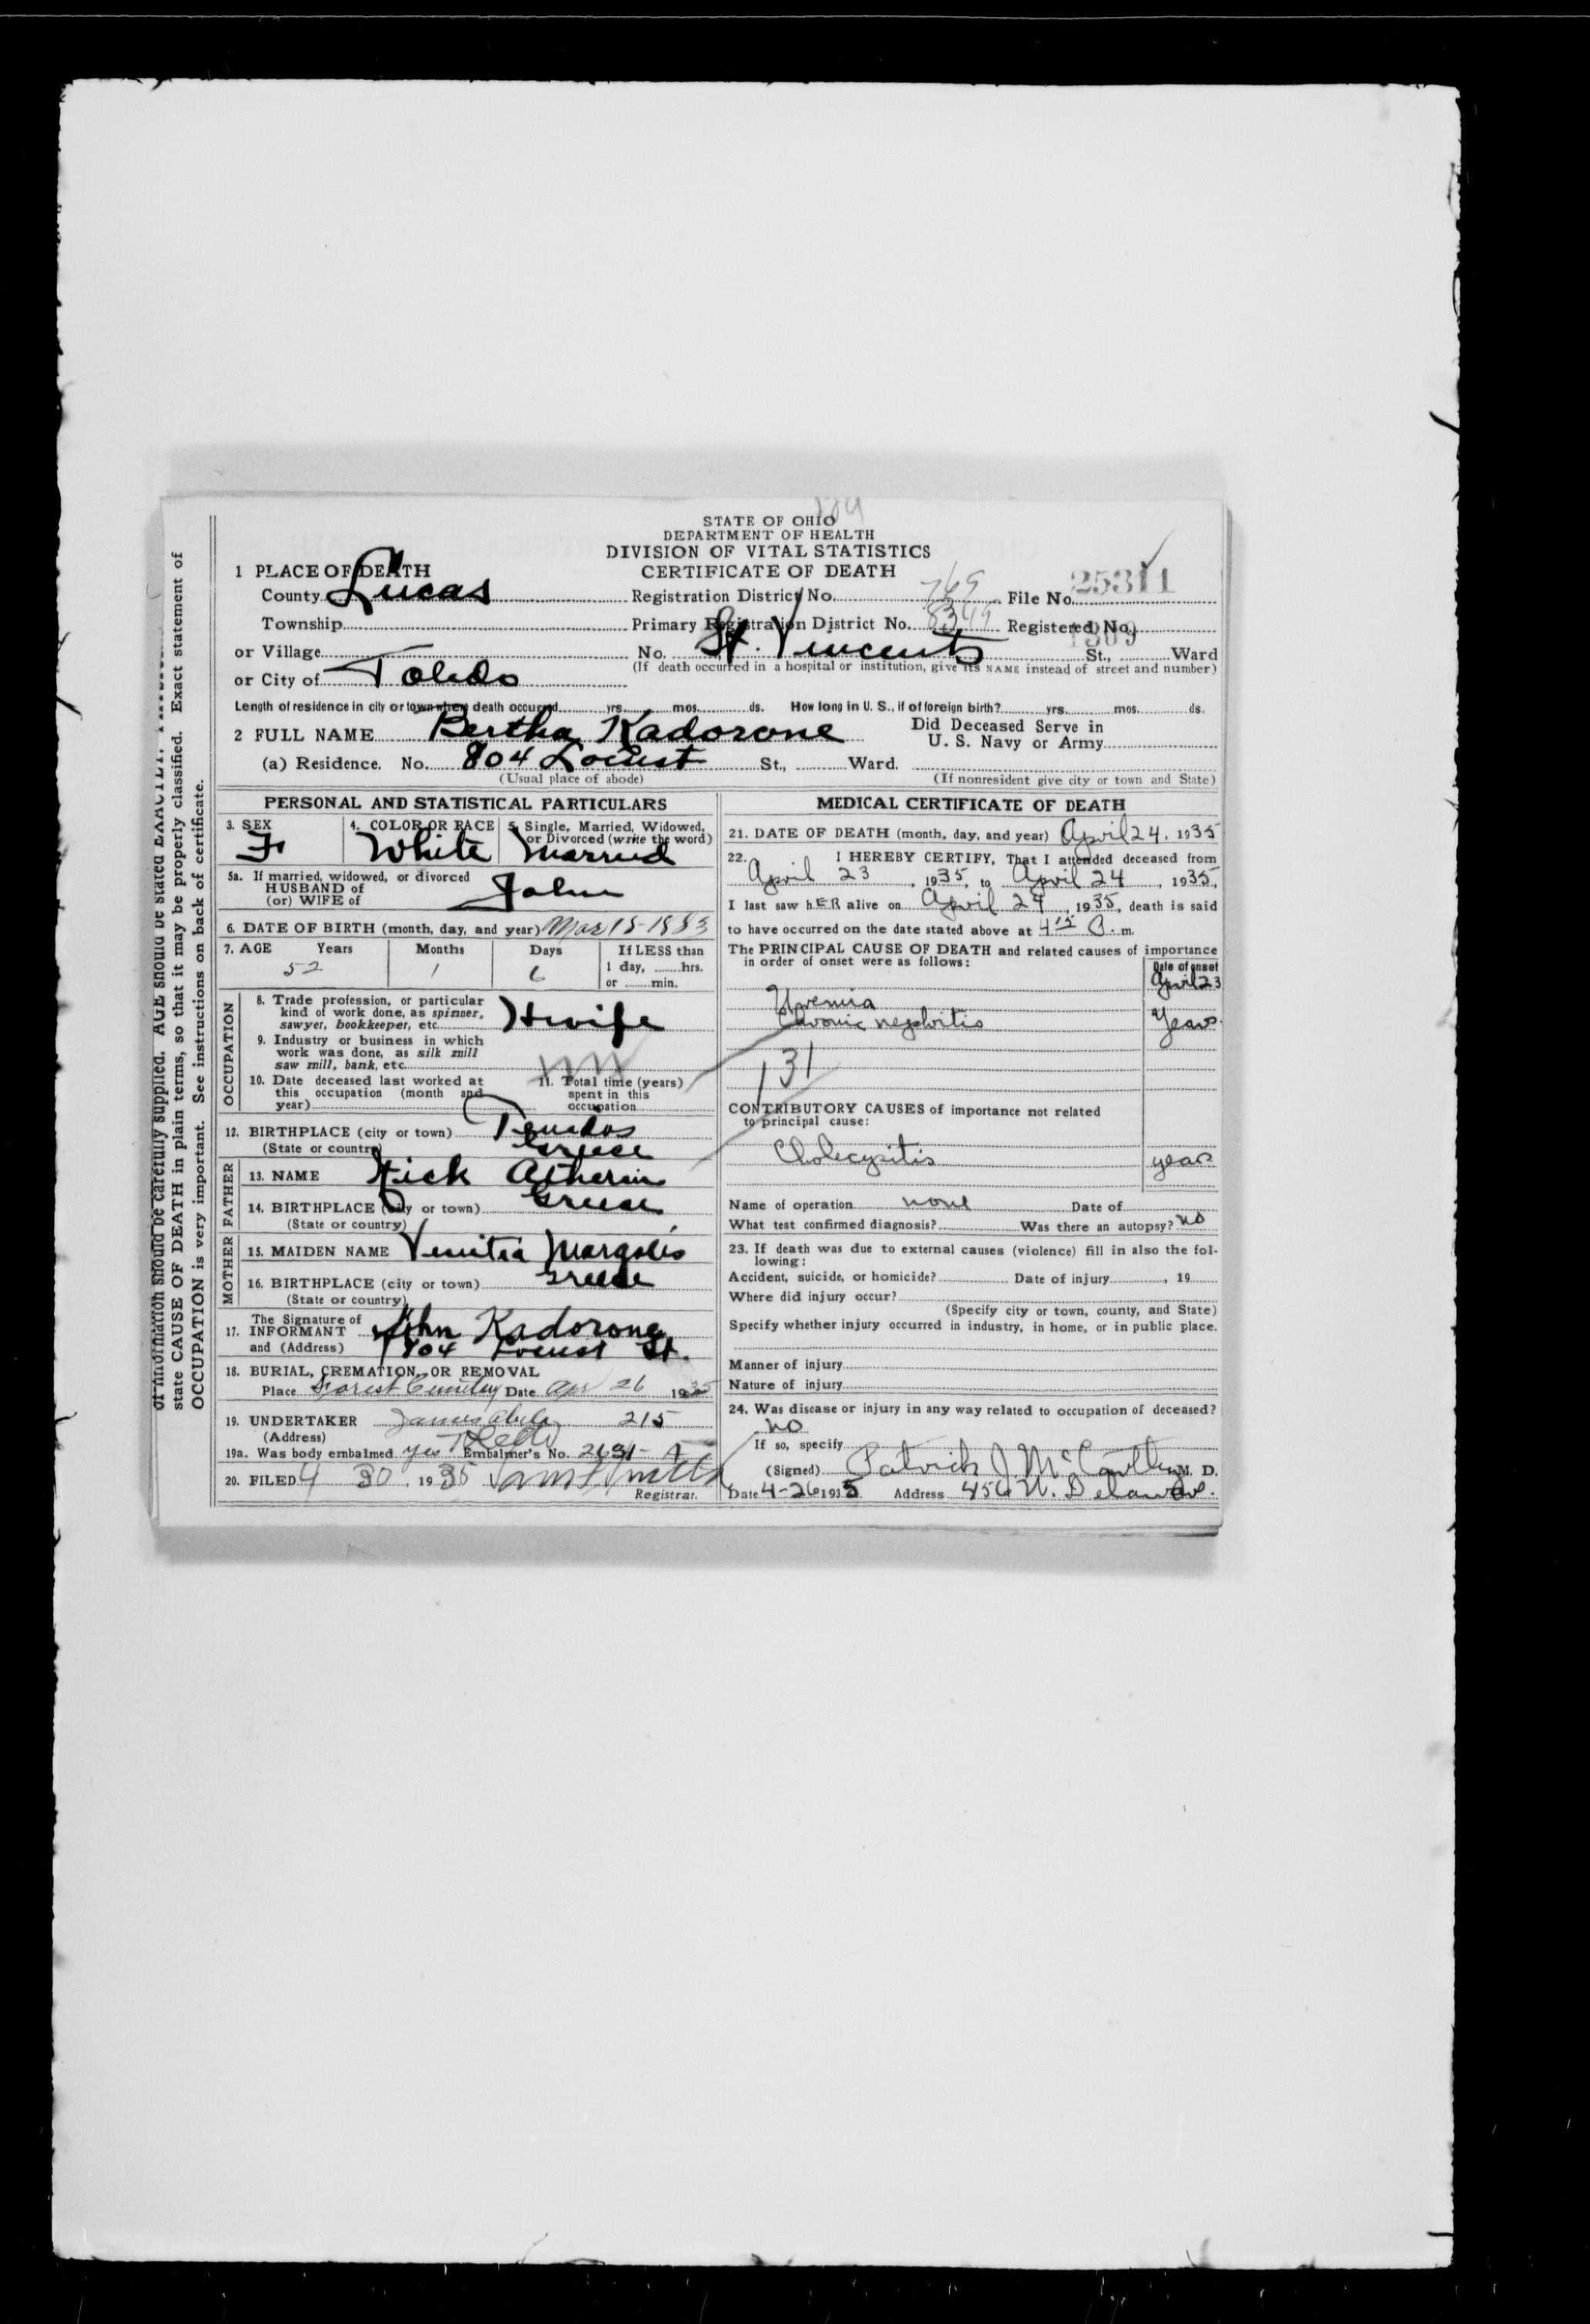 STATE OF OHIO
DEPARTMENT OF HEALTH
DIVISION OF VITAL STATISTICS
CERTIFICATE OF DEATH
1 PLACE OF DEATH
County Lucas Registration District No. 769 File No. 25311
Township Primary Registration District No. 8349 Registered No. 1309
or Village No. St. Vincents St., Ward
(If death occurred in a hospital or institution, give its NAME instead of street and number)
or City of Toledo
Length of residence in city or town where death occurred yrs. mos. ds. How long in U. S., if of foreign birth? yrs. mos. ds.
2 FULL NAME Bertha Kadorone Did Deceased Serve in U. S. Navy or Army
(a) Residence. No. 804 Locust St., Ward.
(Usual place of abode) (If nonresident give city or town and State)
PERSONAL AND STATISTICAL PARTICULARS
3. SEX F
4. COLOR OR RACE White
5. Single, Married, Widowed, or Divorced (write the word) Married
5a. If married, widowed, or divorced
HUSBAND of
(or) WIFE of John
6. DATE OF BIRTH (month, day, and year) Mar 18-1883
7. AGE Years Months Days If LESS than
52 1 6 1 day, hrs.
or min.
OCCUPATION
8. Trade profession, or particular
kind of work done, as spinner,
sawyer, bookkeeper, etc. Hwife
9. Industry or business in which
work was done, as silk mill
saw mill, bank, etc.
10. Date deceased last worked at
this occupation (month and
year)
11. Total time (years)
spent in this
occupation
12. BIRTHPLACE (city or town) Tenedos
(State or country) Greece
FATHER
13. NAME Nick Atherin
14. BIRTHPLACE (city or town) Greece
(State or country)
MOTHER
15. MAIDEN NAME Venitia Margolis
16. BIRTHPLACE (city or town) Greece
(State or country)
17. The Signature of
INFORMANT John Kadorone
and (Address) 804 Locust St.
18. BURIAL, CREMATION, OR REMOVAL
Place Forest Cemetery Date Apr 26 1935
19. UNDERTAKER James 215
(Address) Toledo
19a. Was body embalmed yes Embalmer's No. 2631-A
20. FILED 4 30, 1935
Registrar.
MEDICAL CERTIFICATE OF DEATH
21. DATE OF DEATH (month, day, and year) April 24, 1935
22. I HEREBY CERTIFY, That I attended deceased from
April 23, 1935, to April 24, 1935,
I last saw hER alive on April 24, 1935, death is said
to have occurred on the date stated above at 4 15 A.m.
The PRINCIPAL CAUSE OF DEATH and related causes of importance
in order of onset were as follows:
Date of onset
Uremia April 23
Chronic nephritis Years.
131
CONTRIBUTORY CAUSES of importance not related
to principal cause:
Cholecysitis years
Name of operation none Date of
What test confirmed diagnosis? Was there an autopsy? no
23. If death was due to external causes (violence) fill in also the fol-
lowing:
Accident, suicide, or homicide? Date of injury , 19
Where did injury occur?
(Specify city or town, county, and State)
Specify whether injury occurred in industry, in home, or in public place.
Manner of injury
Nature of injury
24. Was disease or injury in any way related to occupation of deceased?
no
If so, specify
(Signed) Patrick J McCarthy M. D.
Date 4-26 1935 Address 456 W. Delaware Ave.
of information should be carefully supplied. AGE should be stated EXACTLY.
state CAUSE OF DEATH in plain terms, so that it may be properly classified. Exact statement of
OCCUPATION is very important. See instructions on back of certificate.